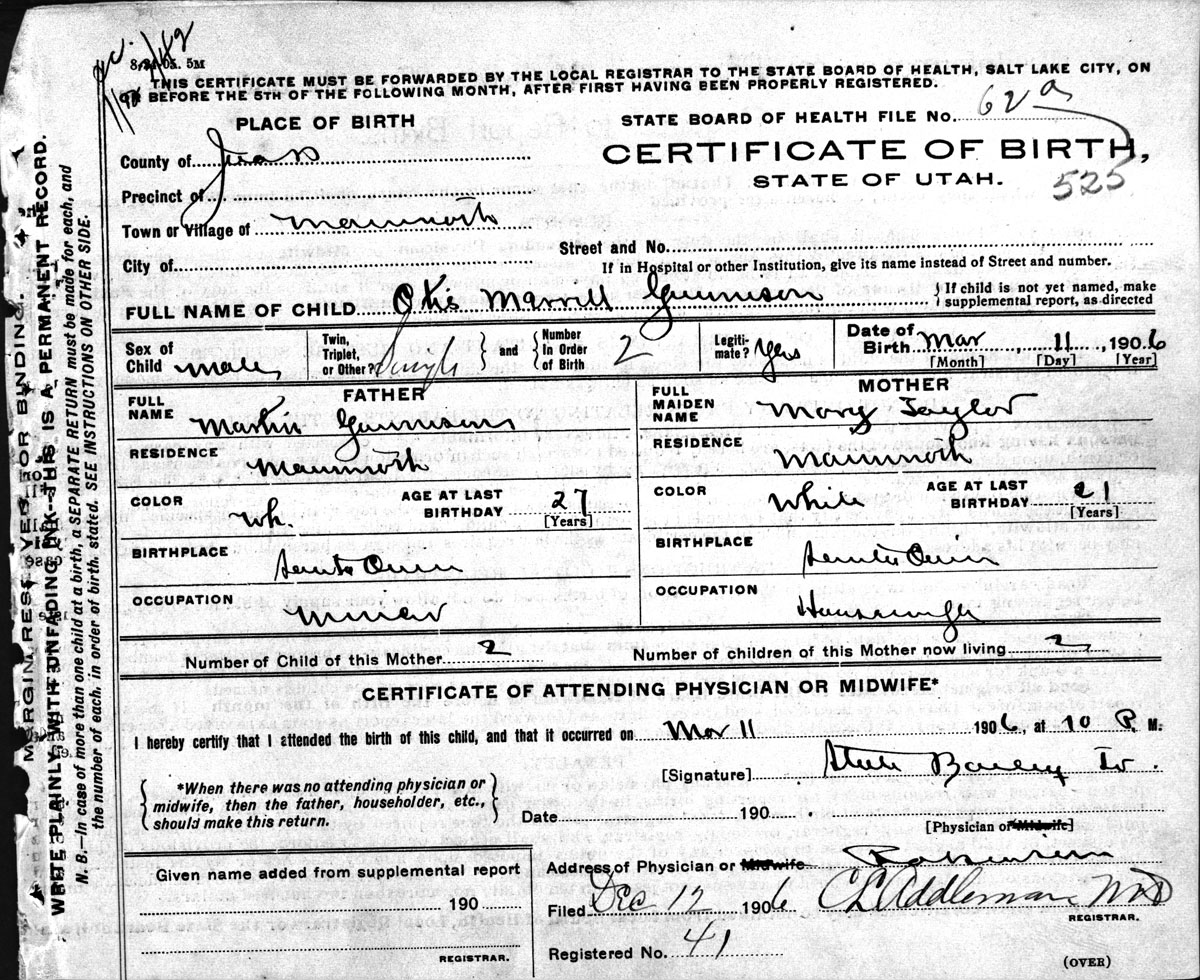 8/24-05. 5M
THIS CERTIFICATE MUST BE FORWARDED BY THE LOCAL REGISTRAR TO THE STATE BOARD OF HEALTH, SALT LAKE CITY, ON
BEFORE THE 5TH OF THE FOLLOWING MONTH, AFTER FIRST HAVING BEEN PROPERLY REGISTERED.
PLACE OF BIRTH
STATE BOARD OF HEALTH FILE No. 62a
County of Juab
CERTIFICATE OF BIRTH,
STATE OF UTAH.
525
Precinct of
Town or Village of Mammoth
Street and No.
City of
If in Hospital or other Institution, give its name instead of Street and number.
FULL NAME OF CHILD Otis Merrill Gunnison
{If child is not yet named, make supplemental report, as directed
Sex of Child Male Twin, Triplet, or Other? Single } and { Number In Order of Birth 2 Legiti-mate? Yes Date of Birth Mar 11, 1906
[Month] [Day] [Year]
FATHER
FULL NAME Martin Gunnison
RESIDENCE Mammoth
COLOR Wh. AGE AT LAST BIRTHDAY 27
[Years]
BIRTHPLACE
OCCUPATION Miner
MOTHER
FULL MAIDEN NAME Mary Taylor
RESIDENCE Mammoth
COLOR White AGE AT LAST BIRTHDAY 21
[Years]
BIRTHPLACE
OCCUPATION Housewife
Number of Child of this Mother 2 Number of children of this Mother now living 2
CERTIFICATE OF ATTENDING PHYSICIAN OR MIDWIFE*
I hereby certify that I attended the birth of this child, and that it occurred on Mar 11 1906, at 10 P. M.
[Signature] Steele Bailey Jr.
{*When there was no attending physician or
midwife, then the father, householder, etc.,
should make this return.}
Date 190 .
[Physician or Midwife]
Given name added from supplemental report
190
REGISTRAR.
Address of Physician or Midwife
Filed Dec 12 1906 C L Addleman MD
REGISTRAR.
Registered No. 41
(OVER)
MARGIN RESERVED FOR BINDING.
WRITE PLAINLY WITH UNFADING INK—THIS IS A PERMANENT RECORD.
N. B.—In case of more than one child at a birth, a SEPARATE RETURN must be made for each, and
the number of each, in order of birth, stated. SEE INSTRUCTIONS ON OTHER SIDE.